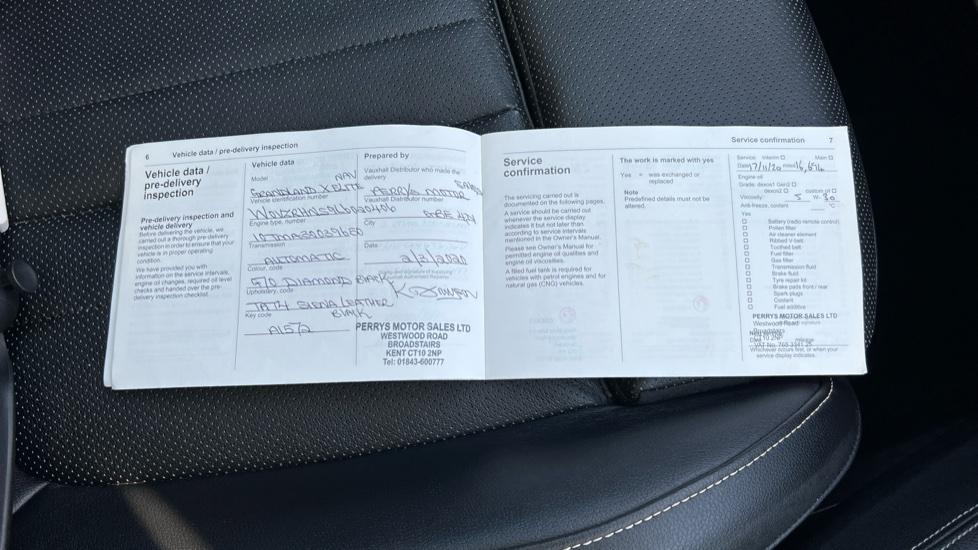 6 Vehicle data / pre-delivery inspection
Vehicle data /
pre-delivery
inspection
Pre-delivery inspection and
vehicle delivery
Before delivering the vehicle, we
carried out a thorough pre-delivery
inspection in order to ensure that your
vehicle is in proper operating
condition.
We have provided you with
information on the service intervals,
engine oil changes, required oil level
checks and handed over the pre-
delivery inspection checklist.
Vehicle data
Model
GRANDLAND X ELITE NAV
Vehicle identification number
Engine type, number
Transmission
AUTOMATIC
Colour, code
DIAMOND BLACK
Upholstery, code
SIENA LEATHER
BLACK
Key code
Prepared by
Vauxhall Distributor who made the
delivery
PERRYS MOTOR SALES
Vauxhall Distributor number
City
Date
2/3/2020
PERRYS MOTOR SALES LTD
WESTWOOD ROAD
BROADSTAIRS
KENT CT10 2NP
Tel: 01843-600777
Service confirmation 7
Service
confirmation
The servicing carried out is
documented on the following pages.
A service should be carried out
whenever the service display
indicates it but not later than
according to service intervals
mentioned in the Owner's Manual.
Please see Owner's Manual for
permitted engine oil qualities and
engine oil viscosities.
A filled fuel tank is required for
vehicles with petrol engines and for
natural gas (CNG) vehicles.
The work is marked with yes
Yes = was exchanged or
replaced
Note
Predefined details must not be
altered.
Service: Interim Main
Date 17/11/20
Engine oil
Grade: dexos1 Gen2
dexos2
Viscosity: 5 W- 30
Anti-freeze, coolant °C
Yes
Battery (radio remote control)
Pollen filter
Air cleaner element
Ribbed V-belt
Toothed belt
Fuel filter
Gas filter
Transmission fluid
Brake fluid
Tyre repair kit
Brake pads front / rear
Spark plugs
Coolant
Fuel additive
PERRYS MOTOR SALES LTD
Westwood Road
Broadstairs
CT10 2NP
Whichever occurs first, or when your
service display indicates.